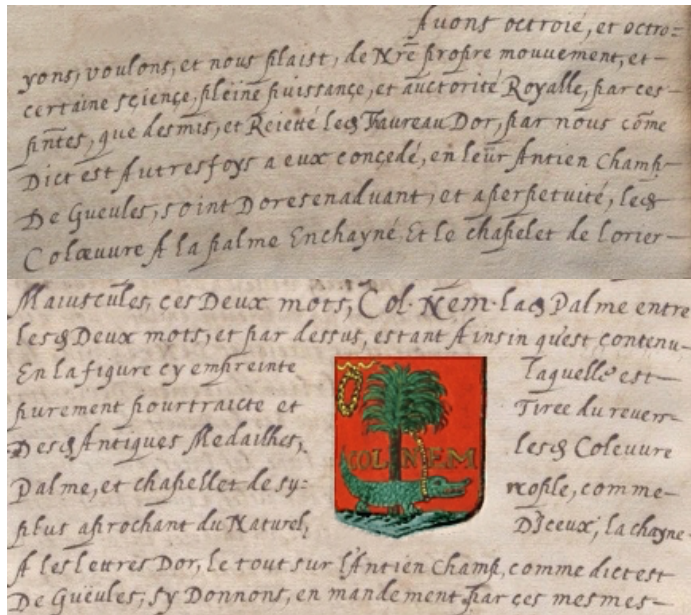 Avons octroié, et octro=
yons, voulons, et nous plaist, de Nrē propre mouvement, et
certaine science, pleine puissance, et auctorité Royalle, par ces
pn̄tes, que desmis, et Reietté led Taureau Dor, par nous cōme
Dict est Autresfoys a eux concedé, en leur Antien Champ
De Gueules, soint Doresenadvant, et aperpetuité, led
Colœuvre A la palme Enchayné Et le chapelet de lorier
Maiuscules, ces Deux mots, Col. Nem. lad Palme entre
lesd Deux mots, et par dessus, estant Ainsin qu'est contenu
En la figure cy empreinte laquelle est
purement pourtraicte et Tiree du revers
Desd Antiques Medailhes, lesd Coleuvre
Palme, et chapellet de sy= profile, comme
plus aprochant du Naturel, D'Iceux, la chayne
COL NEM
A les lettres Dor, le tout sur l'Antien Champ, comme dict est
De Gueules, sy Donnons, en mandement par ces mesmes